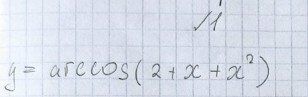 √1
y = arccos(2 + x + x²)